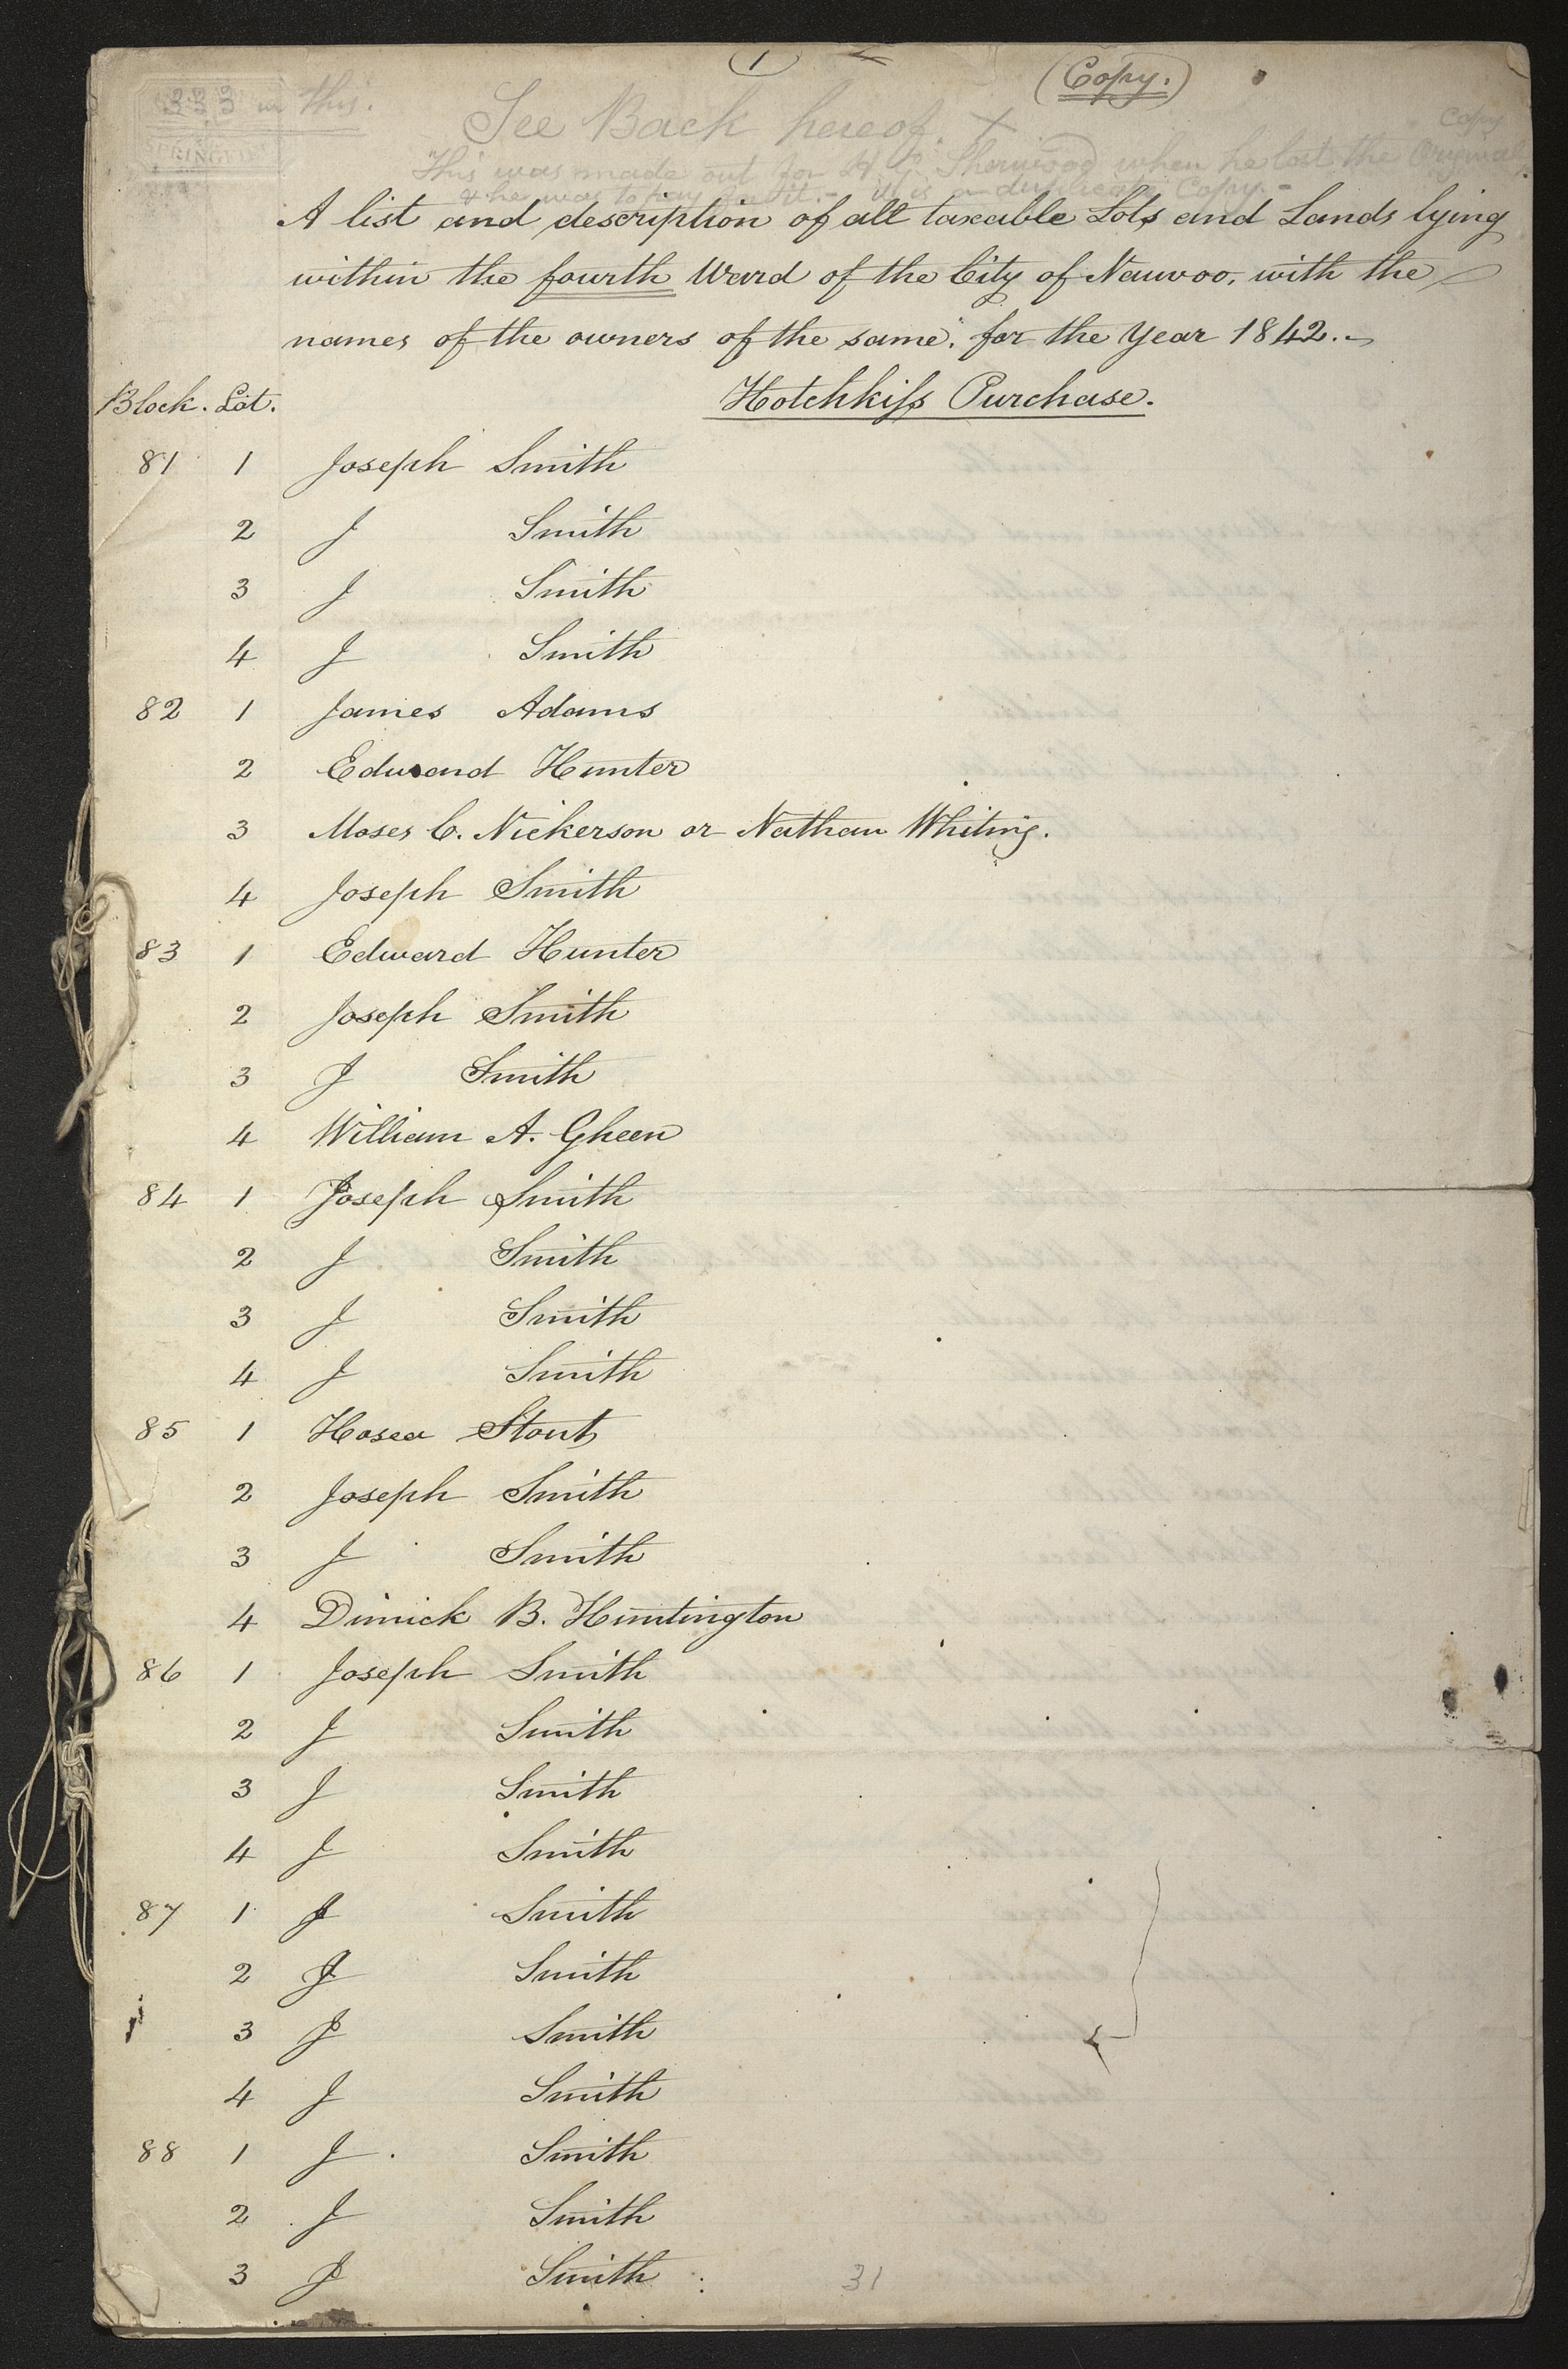 1
(Copy.)
333 in this.
See Back hereof. X
Copy
This was made out for H G Sherwood when he lost the Original,
& he was to pay for it. - it is a duplicate Copy. -
A list and description of all taxable Lots and Lands lying
within the fourth Ward of the City of Nauvoo, with the
names of the owners of the same: for the Year 1842.
Block. Lot. Hotchkiss Purchase.
81 1 Joseph Smith
2 J Smith
3 J Smith
4 J Smith
82 1 James Adams
2 Edward Hunter
3 Moses C. Nickerson or Nathan Whiting.
4 Joseph Smith
83 1 Edward Hunter
2 Joseph Smith
3 J Smith
4 William A. Gheen
84 1 Joseph Smith
2 J Smith
3 J Smith
4 J Smith
85 1 Hosea Stout
2 Joseph Smith
3 J Smith
4 Dimick B. Huntington
86 1 Joseph Smith
2 J Smith
3 J Smith
4 J Smith
87 1 J Smith
2 J Smith
3 J Smith
4 J Smith
88 1 J Smith
2 J Smith
3 J Smith
31